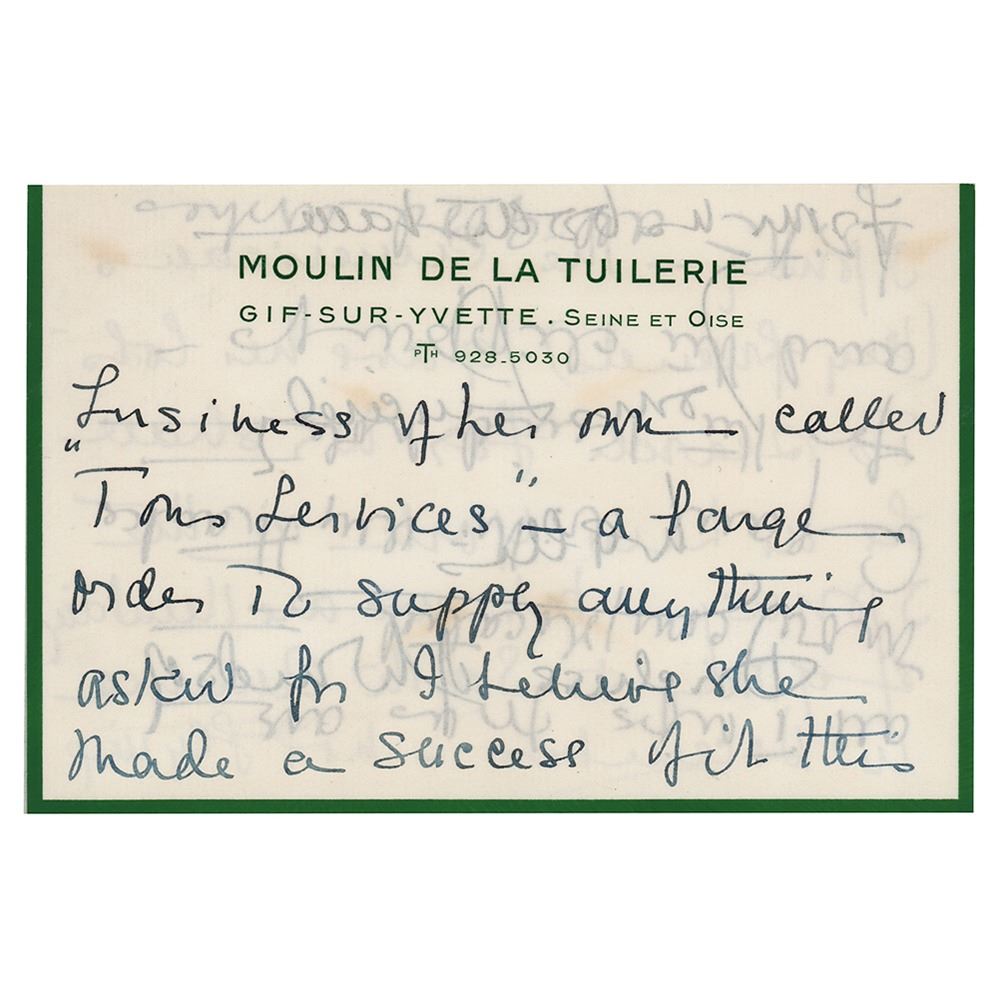 MOULIN DE LA TUILERIE
GIF-SUR-YVETTE. SEINE ET OISE
PTH 928-5030
business of her own — called
"Tous Services" — a large
order to supply anything
asked for I believe she
made a success of it this